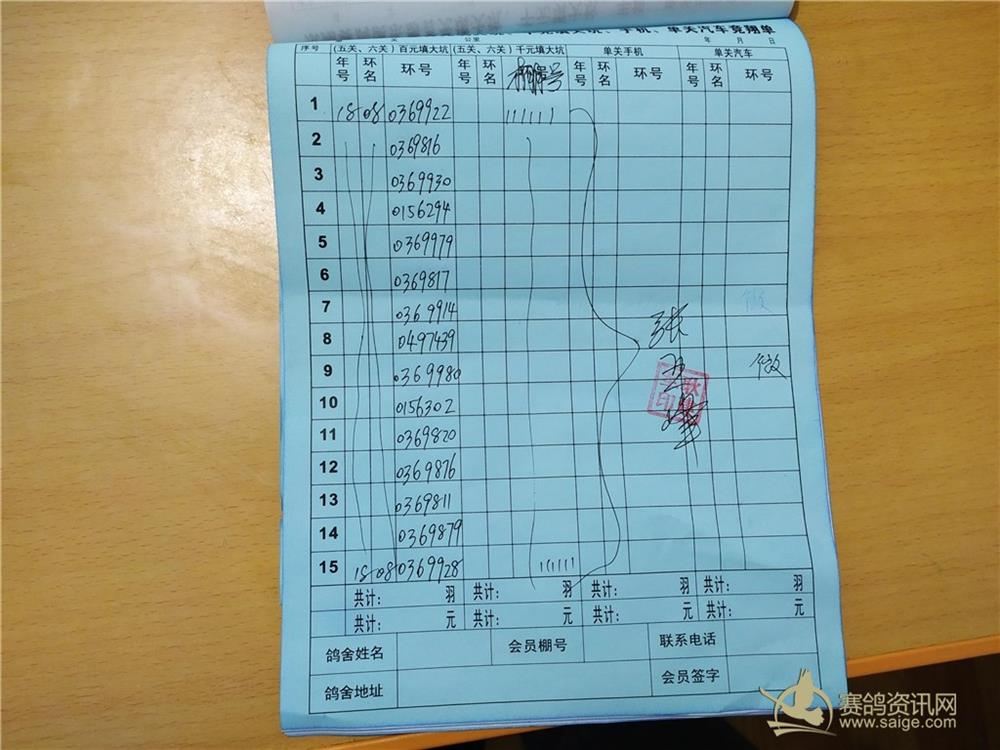 单关汽车竞翔单
公里 年 月 日
序号 (五关、六关)百元填大坑 (五关、六关)千元填大坑 单关手机 单关汽车
年号 环名 环号 年号 环名 棚号 年号 环名 环号 年号 环名 环号
1 18 08 0369922 111111
2 0369816
3 0369930
4 0156294
5 0369979
6 0369817
7 0369914
8 0497439
9 0369980
10 0156302
11 0369820
12 0369876
13 0369811
14 0369879
15 18 08 0369928 111111
张
共计: 羽 共计: 羽 共计: 羽 共计: 羽
共计: 元 共计: 元 共计: 元 共计: 元
鸽舍姓名 会员棚号 联系电话
鸽舍地址 会员签字
赛鸽资讯网
www.saige.com